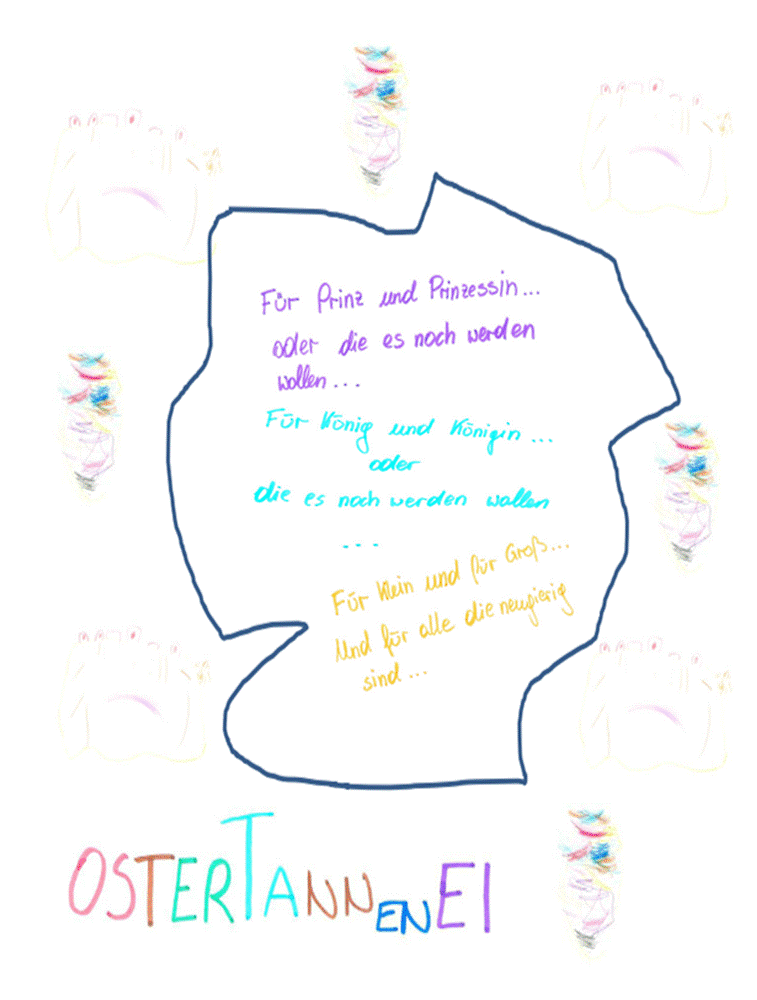 Für Prinz und Prinzessin...
oder die es noch werden
wollen...
Für König und Königin...
oder
die es noch werden wollen
...
Für Klein und für Groß...
Und für alle die neugierig
sind...
OSTERTANNENEI